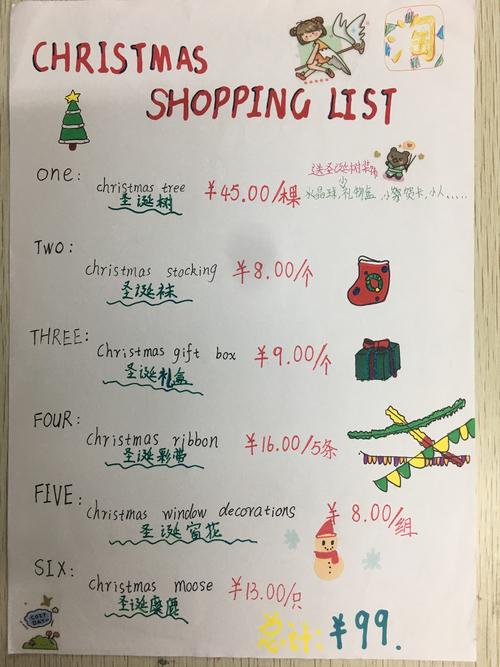 CHRISTMAS
淘
SHOPPING LIST
one:
christmas tree ¥45.00/棵
圣诞树
送圣诞树装饰
水晶球,礼物盒,小贺卡,小人......
TWO:
christmas stocking ¥8.00/个
圣诞袜
THREE:
Christmas gift box ¥9.00/个
圣诞礼盒
FOUR:
christmas ribbon ¥16.00/5条
圣诞彩带
FIVE:
christmas window decorations ¥8.00/组
圣诞窗花
SIX:
christmas moose ¥13.00/只
圣诞麋鹿
COZY DAY
总计:¥99.